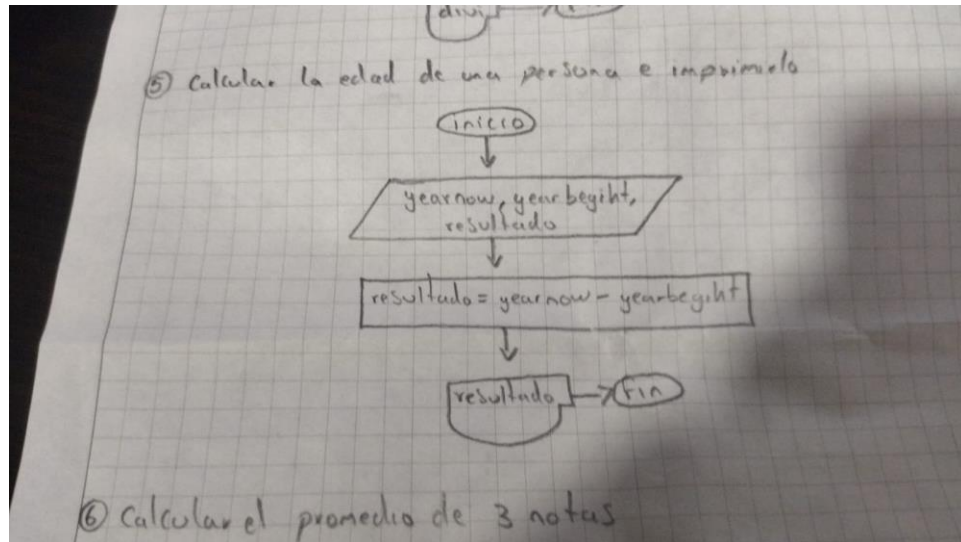 divi
⑤ Calcular la edad de una persona e imprimielo
inicio
yearnow, yearbegiht,
resultado
resultado = yearnow - yearbegiht
resultado
Fin
⑥ Calcular el promedio de 3 notas